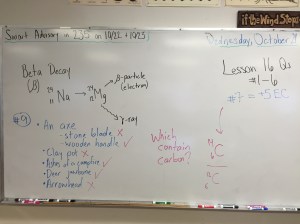 if the Wind Stops
Smart Advisory in 235 on 10/22 + 10/23
Wednesday, October
Beta Decay
(β)
24 11 Na → 24 12 Mg
β-particle
(electron)
γ-ray
Lesson 16 Qs
#1-6
#7 = +5 EC
#9
• An axe
- stone blade ✗
- wooden handle ✓
• Clay pot ✗
• Ashes of a campfire ✓
• Deer jawbone ✓
• Arrowhead ✗
Which
contain
carbon?
14 6 C
12 6 C